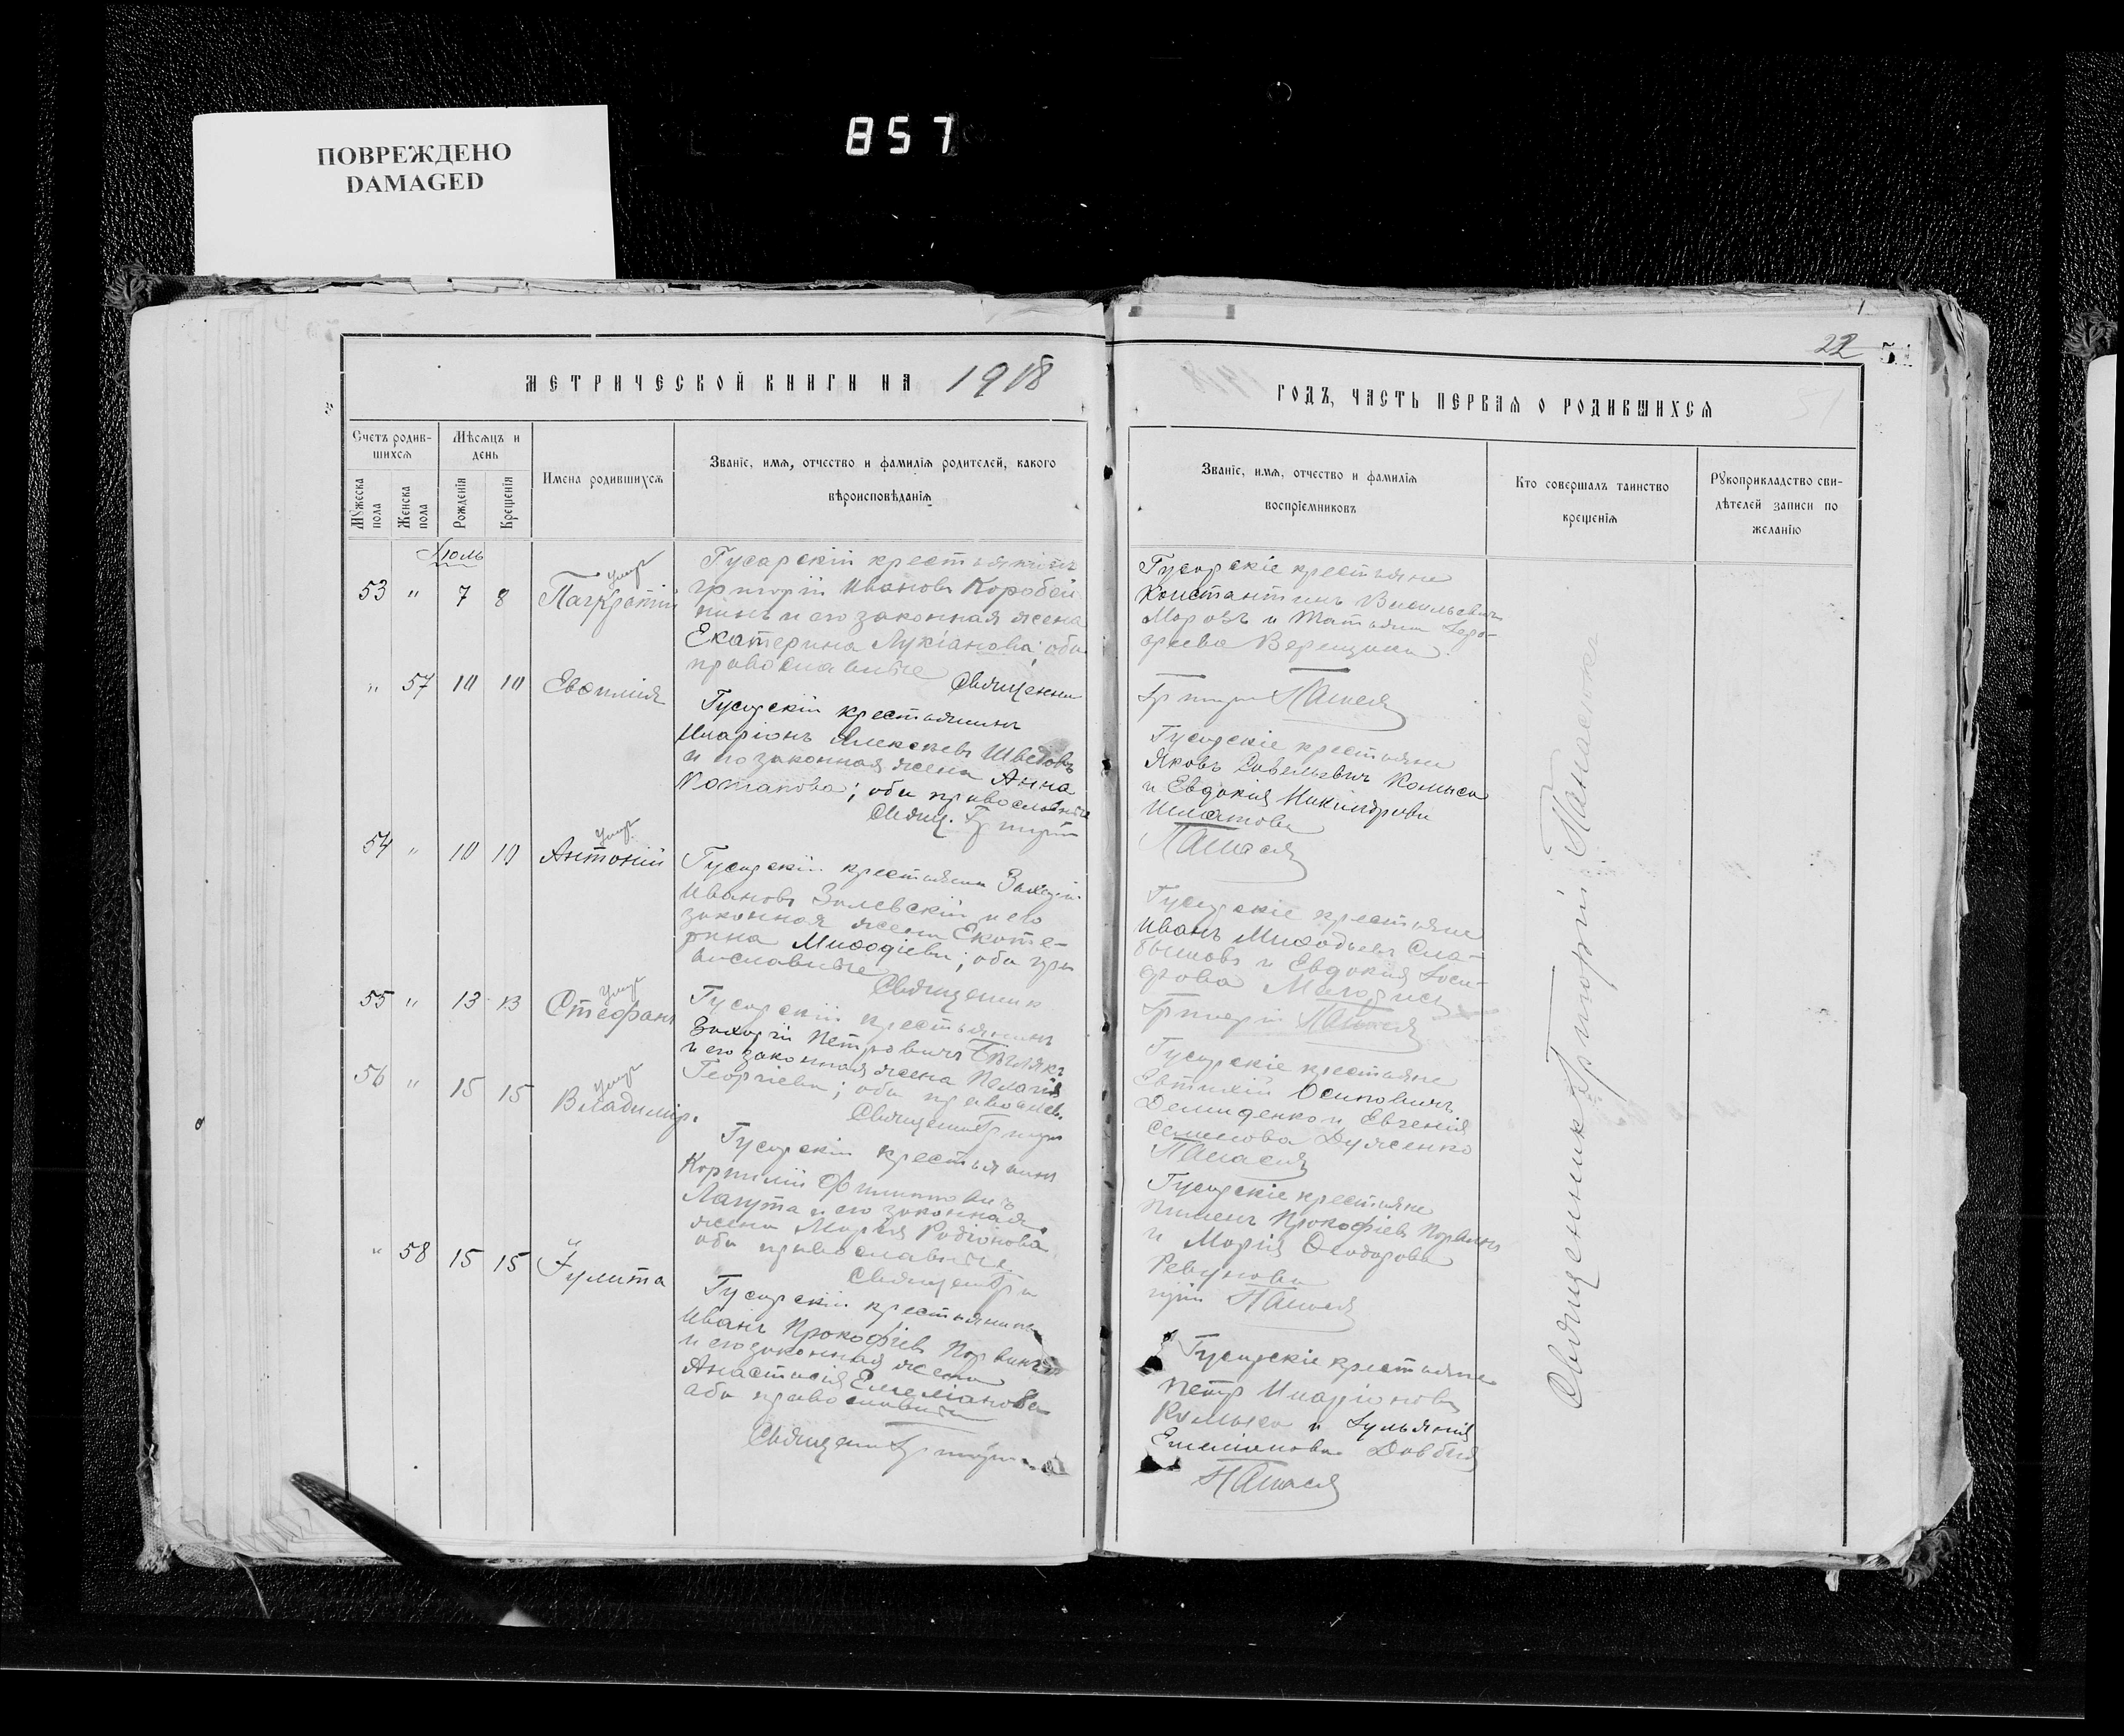 ПОВРЕЖДЕНО
DAMAGED
857
22
МЕТРИЧЕСКОЙ КНИГИ НА 1918
ГОДЪ, ЧАСТЬ ПЕРВАЯ О РОДИВШИХСЯ
Счетъ родив-
шихся
Мѣсяцъ и
день
Мужеска
пола
Женска
пола
Рожденія
Крещенія
Имена родившихся
Званіе, имя, отчество и фамилія родителей, какого
вѣроисповѣданія
Званіе, имя, отчество и фамилія
воспріемниковъ
Кто совершалъ таинство
крещенія
Рукоприкладство сви-
дѣтелей записи по
желанію
Іюль
53 " 7 8 Панкратій
умер
Гусарскій крестьянинъ
Григорій Ивановъ Коробей
нинъ и его законная жена
Екатерина Лукіанова; оба
православные
Священни
Гусарскіе крестьяне
Константинъ Васильевичъ
Морозъ и Татьяна
Верещака
Григорій
" 57 10 10 Евфимія
Гусарскій крестьянинъ
Иларіонъ Алексѣевъ Шведовъ
и его законная жена Анна
Потапова; оба православные
Свящ. Григорій
Гусарскіе крестьяне
Яковъ Савельевичъ Комыса
и Евдокія Никандрова
Шматова
54 " 10 10 Антоній
умер
Гусарскій крестьянин Захарій
Ивановъ Залевскій и его
законная жена Екате-
рина Мифодіева; оба пра
вославные
Священник
Гусарскіе крестьяне
Иванъ Мифодьевъ
и Евдокія
Григорій
55 " 13 13 Стефанъ
умер
Гусарскій крестьянинъ
Захарій Петровичъ Бѣлякъ
и его законная жена Пелагія
Георгіева; оба православ.
Священник Григорій
Гусарскіе крестьяне
Евтихій Осиповичъ
Демиденко и Евгенія
Семенова Дуженко
56 " 15 15 Владиміръ.
умер
Гусарскій крестьянинъ
Корнилій Филипповичъ
Лагута и его законная
жена Марія Родіонова
оба православные
Священ Гри
Гусарскіе крестьяне
Пименъ Прокофіевъ
и Марія Феодорова
Ревунова
горій
" 58 15 15 Іулита
Гусарскій крестьянинъ
Иванъ Прокофіевъ
и его законная жена
Анастасія Емеліанова
оба православные
Священ Григорій
Гусарскіе крестьяне
Петръ Иларіоновъ
Комыса и Іульянія
Емеліанова Довбня
Священникъ Григорій